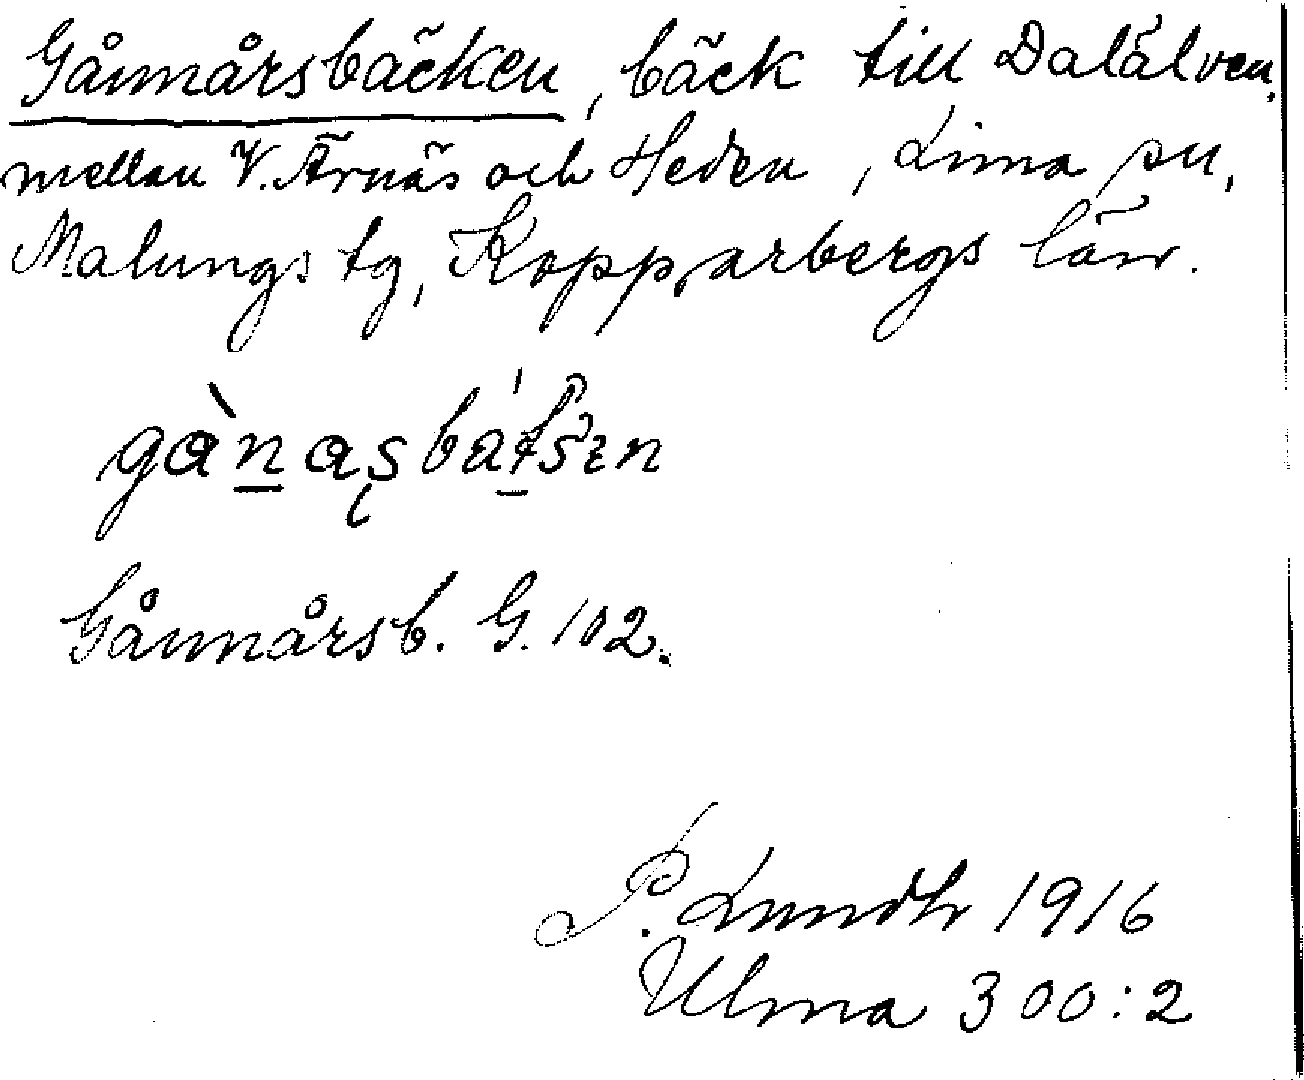 Gånnårsbäcken, bäck till Dalälven.
mellan V. Ärnäs och Heden, Lima sn,
Malungs tg, Kopparbergs län.
Gånnårsb. G. 102.
P. Lundh 1916
Ulma 300:2